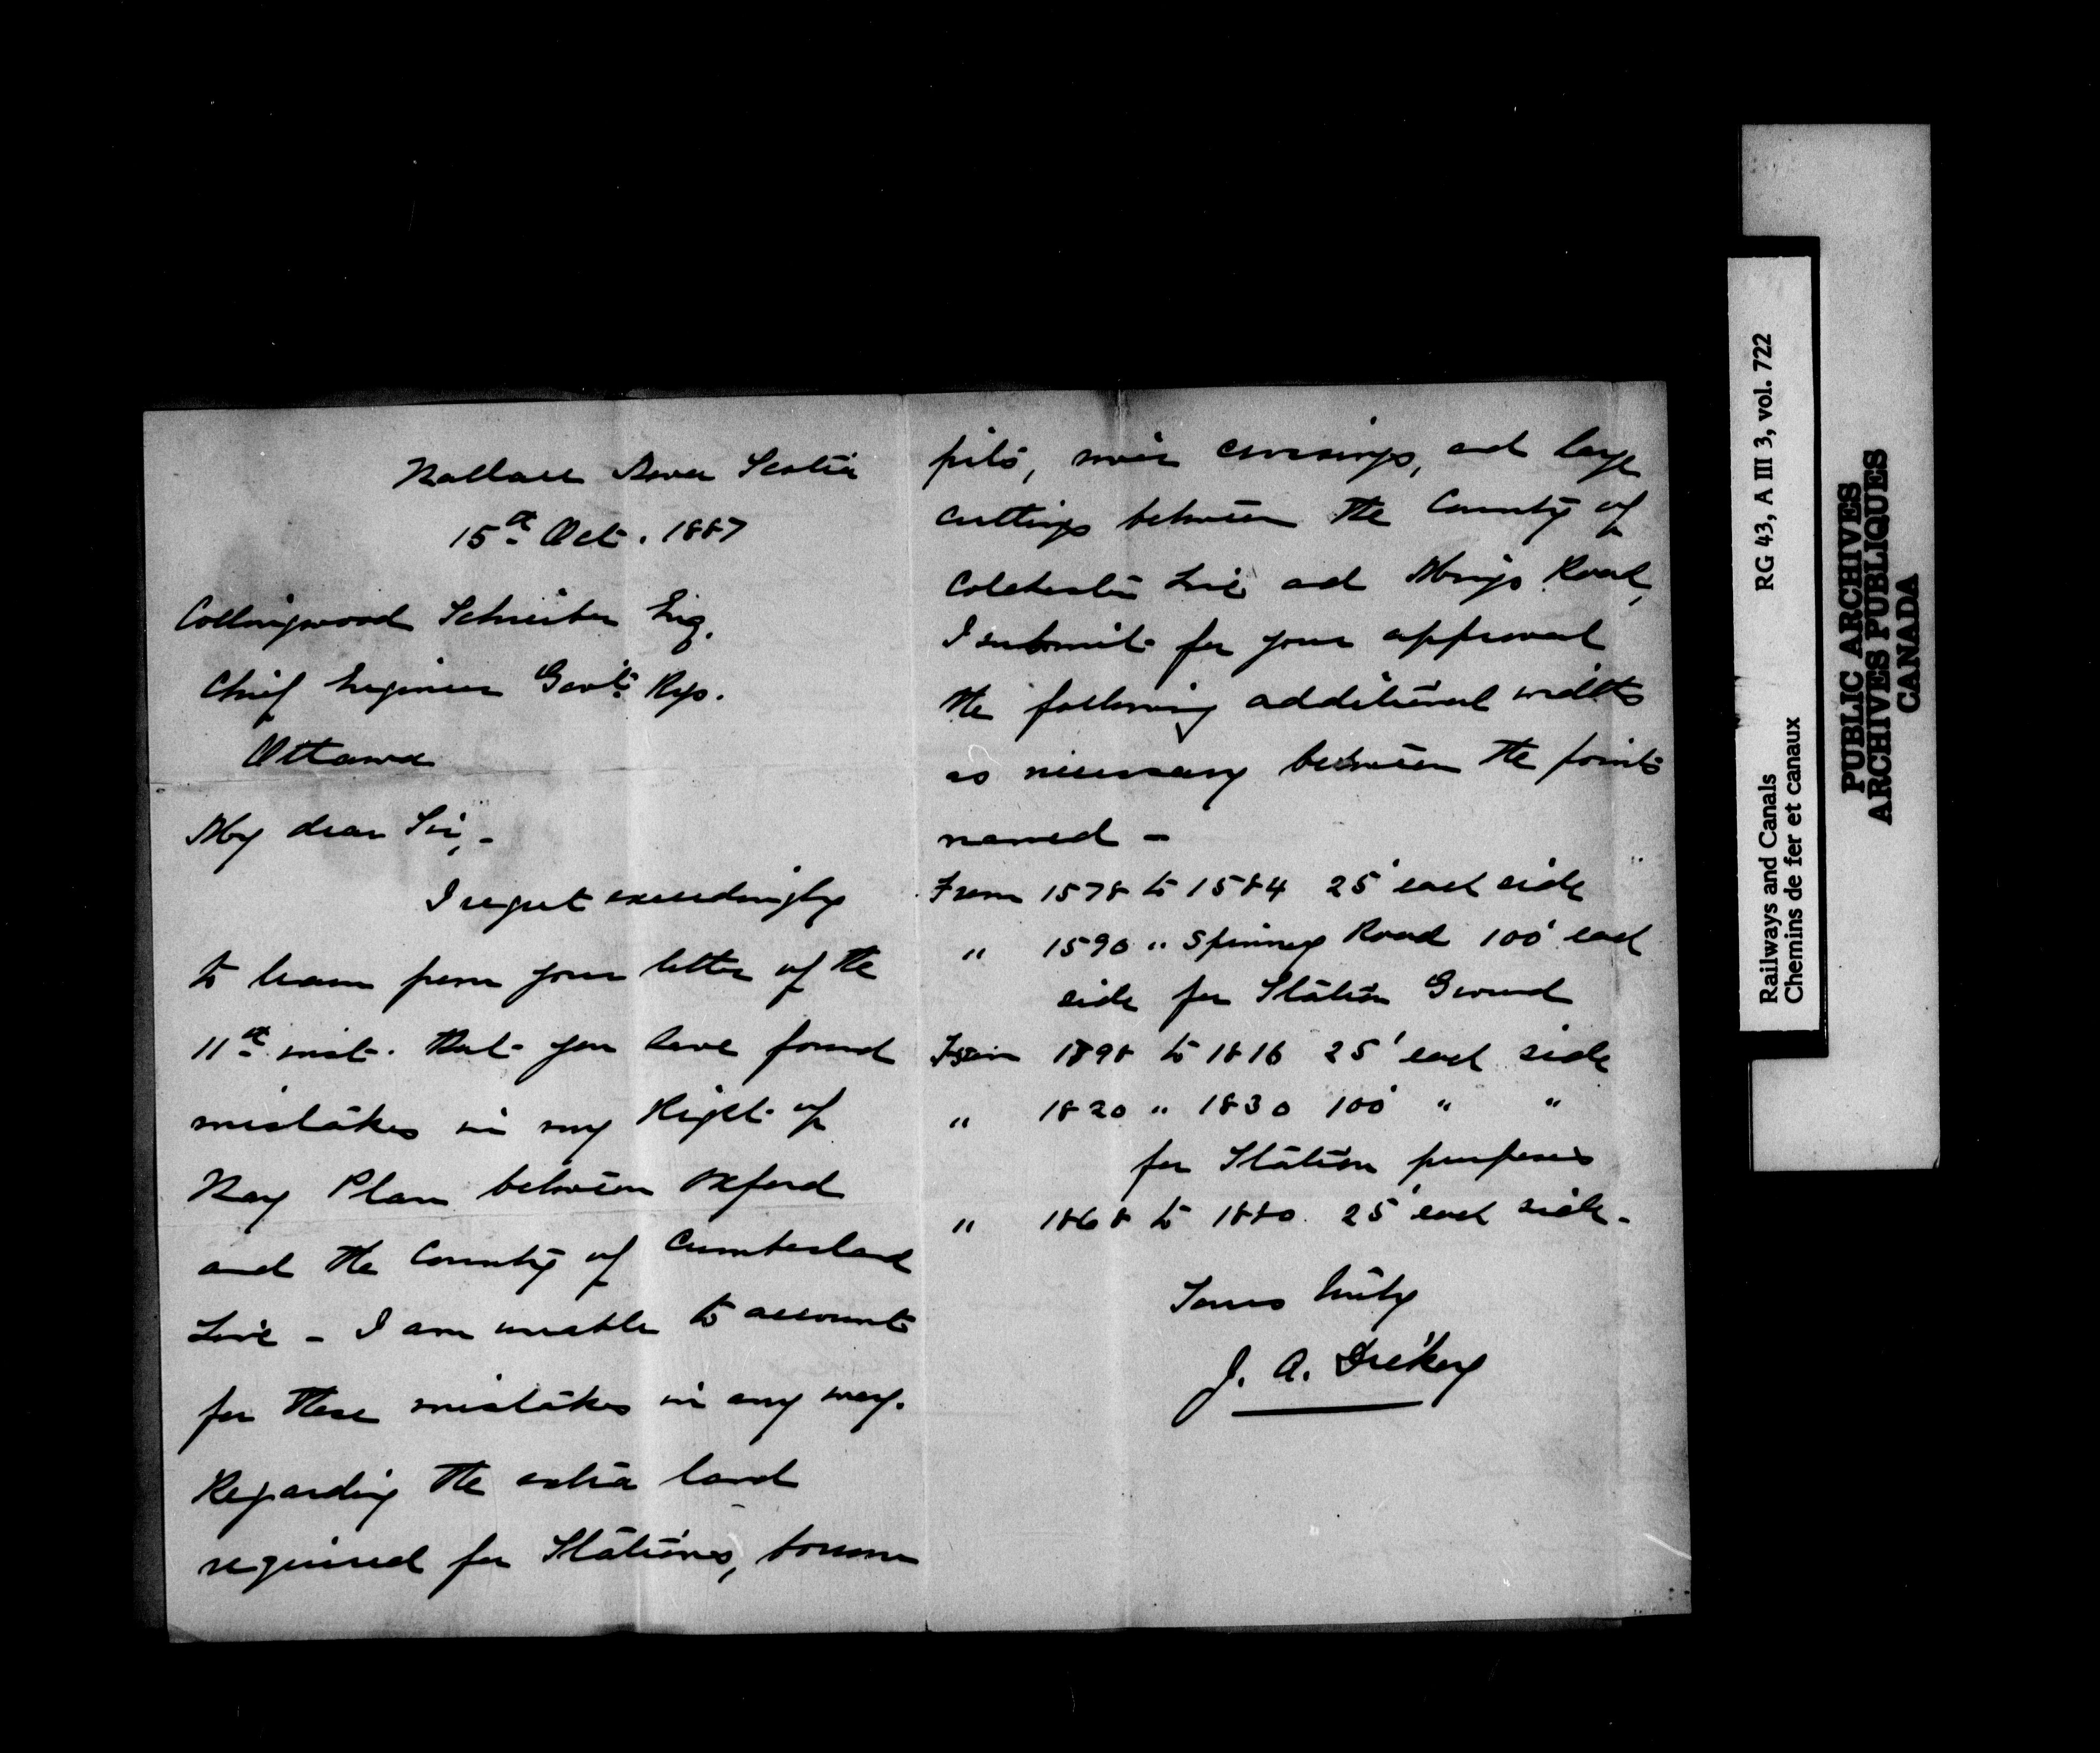 Wallace Nova Scotia
15th Oct. 1887
Collingwood Schreiber Esq.
Chief Engineer Govt. Rys.
Ottawa
My dear Sir,-
I regret exceedingly
to learn from your letter of the
11th inst. that you have found
mistakes in my Right of
Way Plan between Oxford
and the County of Cumberland
Line - I am unable to account
for these mistakes in any way.
Regarding the extra land
required for Stations, borrow
pits, river crossings, and large
cuttings between the County of
Colchester Line and Road,
I submit for your approval
the following additional widths
as necessary between the points
named -
From 1578 to 1584 25' each side
" 1590 " Spinney Road 100' each
side for Station Ground
From 1898 to 1816 25' each side
" 1820 " 1830 100' " "
for Station purposes
" 1868 to 1880. 25' each side.
Yours truly
J. A. Dickey
Railways and Canals RG 43, A III 3, vol. 722
Chemins de fer et canaux
PUBLIC ARCHIVES
ARCHIVES PUBLIQUES
CANADA